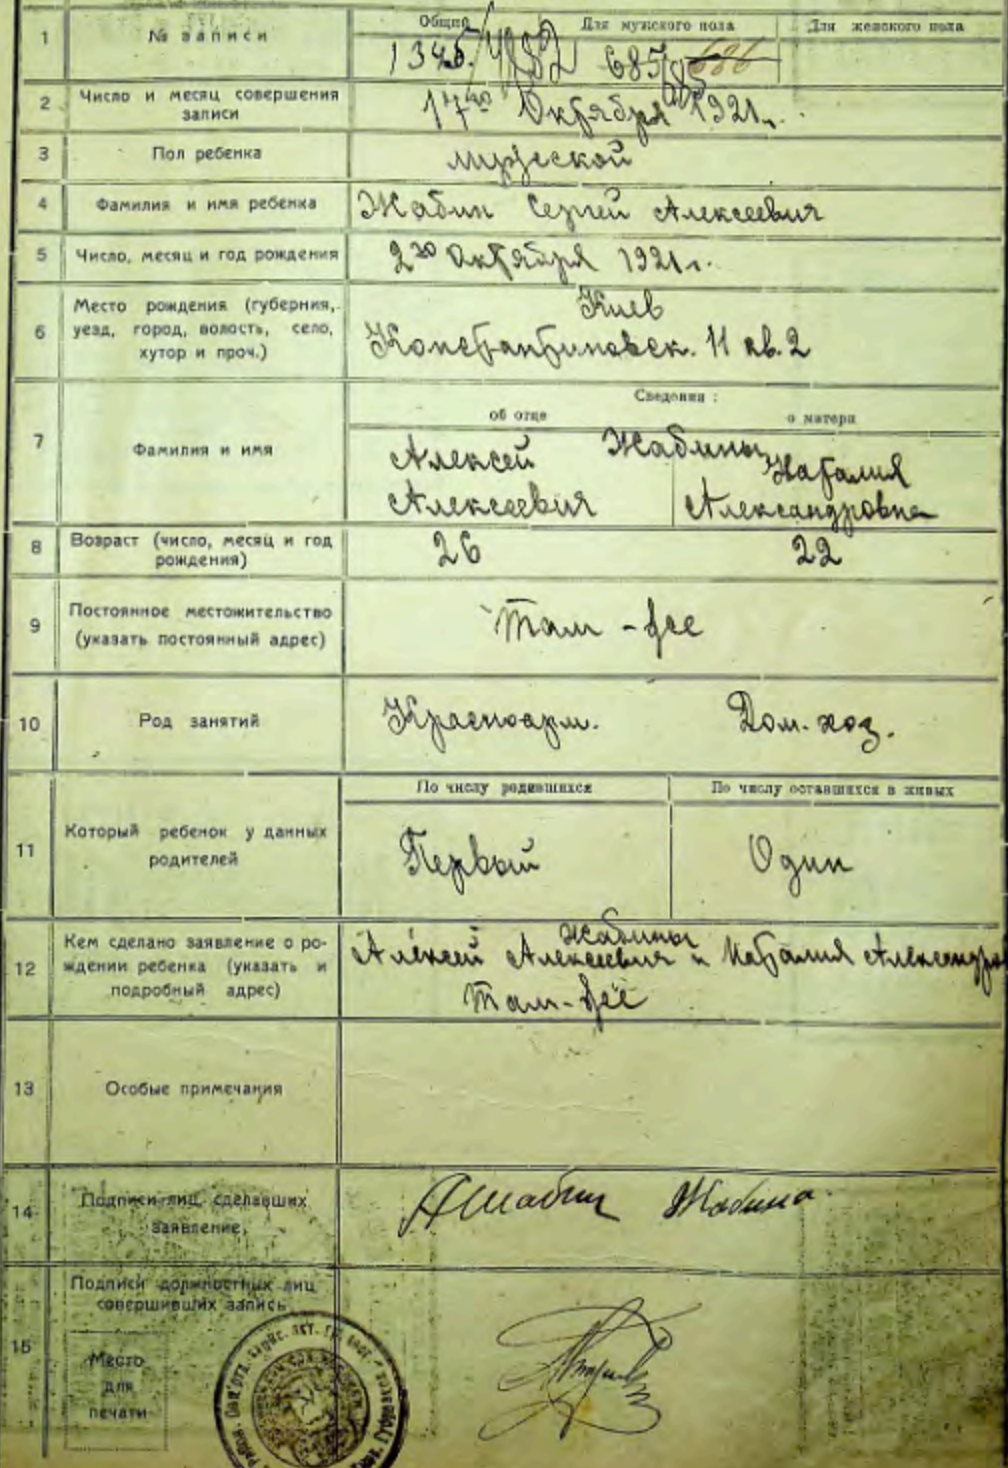 1 № записи
Общий Для мужского пола Для женского пола
685 686
2 Число и месяц совершения
записи
17го Октября 1921г.
3 Пол ребенка мужеской
4 Фамилия и имя ребенка Жабин Сергей Алексеевич
5 Число, месяц и год рождения 2го Октября 1921г.
6 Место рождения (губерния,
уезд, город, волость, село,
хутор и проч.)
Киев
Константиновск. 11 кв. 2
7 Фамилия и имя
Сведения:
об отце о матери
Жабины
Алексей Наталия
Алексеевич Александровна
8 Возраст (число, месяц и год
рождения)
26 22
9 Постоянное местожительство
(указать постоянный адрес)
Там-же
10 Род занятий Красноарм. Дом. хоз.
11 Который ребенок у данных
родителей
По числу родившихся По числу оставшихся в живых
Первый Один
12 Кем сделано заявление о ро-
ждении ребенка (указать и
подробный адрес)
Жабины
Алексей Алексеевич и Наталия Александров
Там-же
13 Особые примечания
14 Подписи лиц, сделавших
заявление.
АЖабин Жабина
15 Подписи должностных лиц
совершивших запись
Место
для
печати